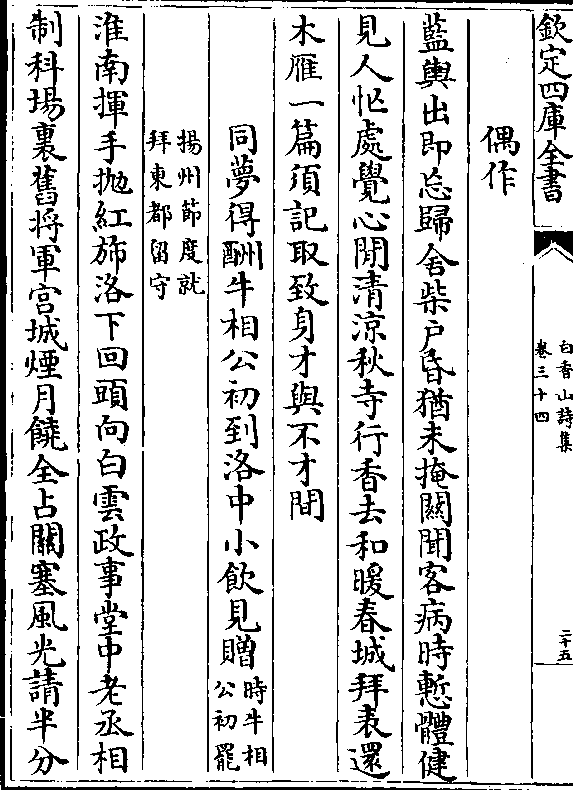 欽定四庫全書
白香山詩集
卷三十四
二十五
偶作
藍輿出即忘歸舍柴戶昏猶未掩關聞客病時慙體健
見人忙處覺心閒清涼秋寺行香去和暖春城拜表還
木雁一篇須記取致身才與不才間
同夢得酬牛相公初到洛中小飲見贈時牛相
公初罷
揚州節度就
拜東都留守
淮南揮手拋紅斾洛下回頭向白雲政事堂中老丞相
制科場裏舊將軍宮城煙月饒全占關塞風光請半分